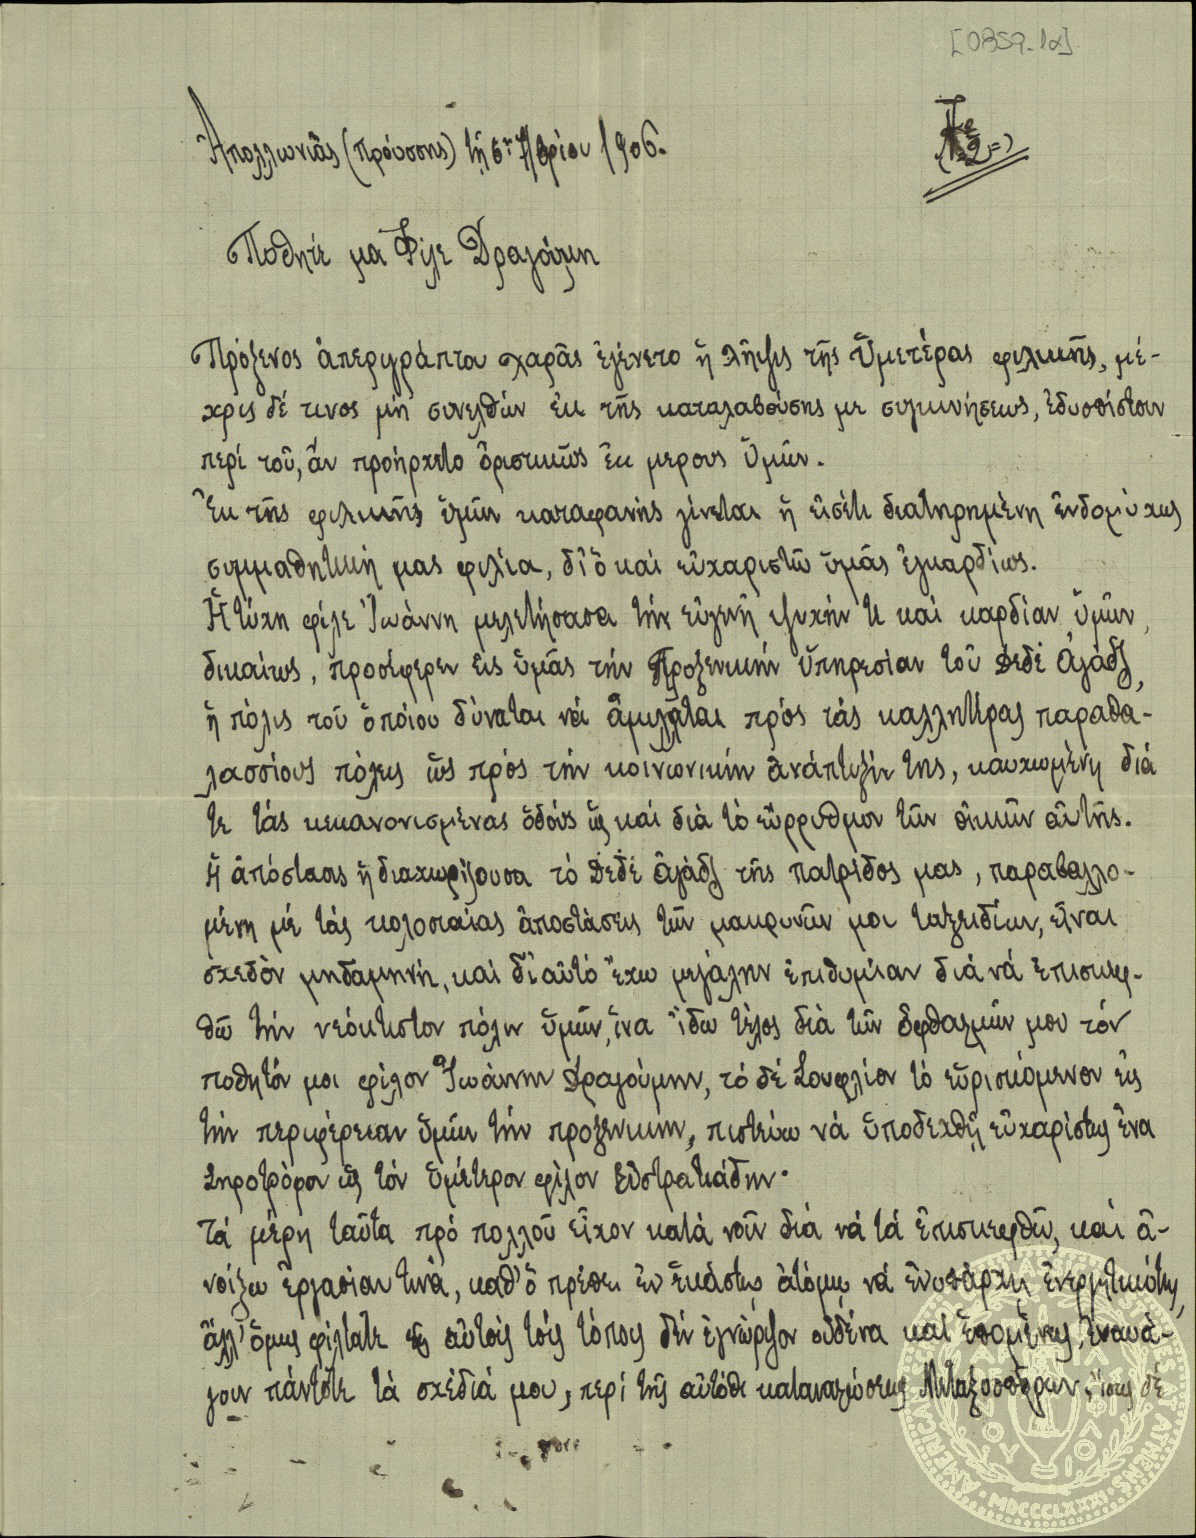 [0859-1α]
Ἀπολλωνιᾶς (Προύσσης) τῇ 6ῃ 7/βρίου 1906.
Ποθητέ μοι Φίλε Δραγούμη
Πρόξενος ἀπεριγράπτου χαρᾶς ἐγένετο ἡ λῆψις τῆς Ὑμετέρας φιλικῆς, μέ-
χρις δέ τινος μή συνελθών ἐκ τῆς καταλαβούσης με συγκινήσεως, ἐδυσπίστουν
περί τοῦ, ἄν προήρχετο ὁριστικῶς ἐκ μερους ὑμῶν.
Ἐκ τῆς φιλικῆς ὑμῶν καταφανής γίνεται ἡ εἰσέτι διατηρημένη ἐνδομύχως
συμμαθητική μας φιλία, δι' ὅ καί εὐχαριστῶ ὑμᾶς ἐγκαρδίως.
Ἡ τύχη φίλε Ἰωάννη μελετήσασα τήν εὐγενῆ ψυχήν τε καί καρδίαν ὑμῶν,
δικαίως, προσέφερεν εἰς ὑμᾶς τήν Προξενικήν ὑπηρεσίαν τοῦ Δεδέ Ἀγάτζ,
ἡ πόλις τοῦ ὁποίου δύναται νά ἁμιλλᾶται πρός τάς καλλητέρας παραθα-
λασσίους πόλεις ὡς πρός τήν κοινωνικήν ἀνάπτυξίν της, καυχωμένη διά
τε τάς κεκανονισμένας ὁδούς ὡς καί διά τό εὔρρυθμον τῶν οἰκιῶν αὐτῆς.
Ἡ ἀπόστασις ἡ διαχωρίζουσα τό Δεδέ Ἀγάτζ τῆς πατρίδος μας, παραβαλλο-
μένη μέ τάς κολοσιαίας ἀποστάσεις τῶν μακρυνῶν μοι ταξειδίων, εἶναι
σχεδόν μηδαμηνή, καί δι' αὐτό ἔχω μεγάλην ἐπιθυμίαν διά νά ἐπισκεφ-
θῶ τήν νεόκτιστον πόλιν ὑμῶν, ἵνα ἴδω τέλος διά τῶν ὀφθαλμῶν μου τόν
ποθητόν μοι φίλον Ἰωάννην Δραγούμην, τό δέ Σουφλίον τό εὑρισκόμενον εἰς
τήν περιφέρειαν ὑμῶν τήν προξενικήν, πιστεύω νά ὑποδεχθῇ εὐχαρίστως ἕνα
Σηροτρόφον ὡς τόν ὑμέτερον φίλον Εὐστρατιάδην.
Τά μέρη ταῦτα πρό πολλοῦ εἶχον κατά νοῦν διά νά τά ἐπισκεφθῶ, καί ἀ-
νοίξω ἐργασίαν τινά, καθ' ὅ πρέπει ἐν ἑκάστῳ ἀτόμῳ νά ἐνυπάρχῃ ἐνεργητικότης,
ἀλλ' ὅμως φίλτατε αὐτοῖς τοῖς τόποις δέν ἐγνώριζον οὐδένα καί ἑπομένως, ἐναυά-
γουν πάντοτε τά σχέδιά μου, περί τῆς αὐτόθι κατασκευάσεως Μεταξοσπόρων, ἴσως δέ
AMERICAN
AT ATHENS
MDCCCLXXXI